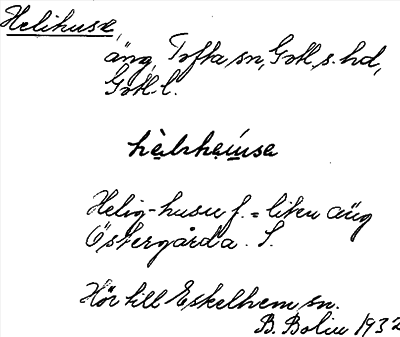 Helihuse,
äng, Tofta sn, Gotl. s. hd,
Gotl. l.
Helig-husu f. = liten äng
Östergårda. S.
Hör till Eskelhem sn.
B. Bolin 1932